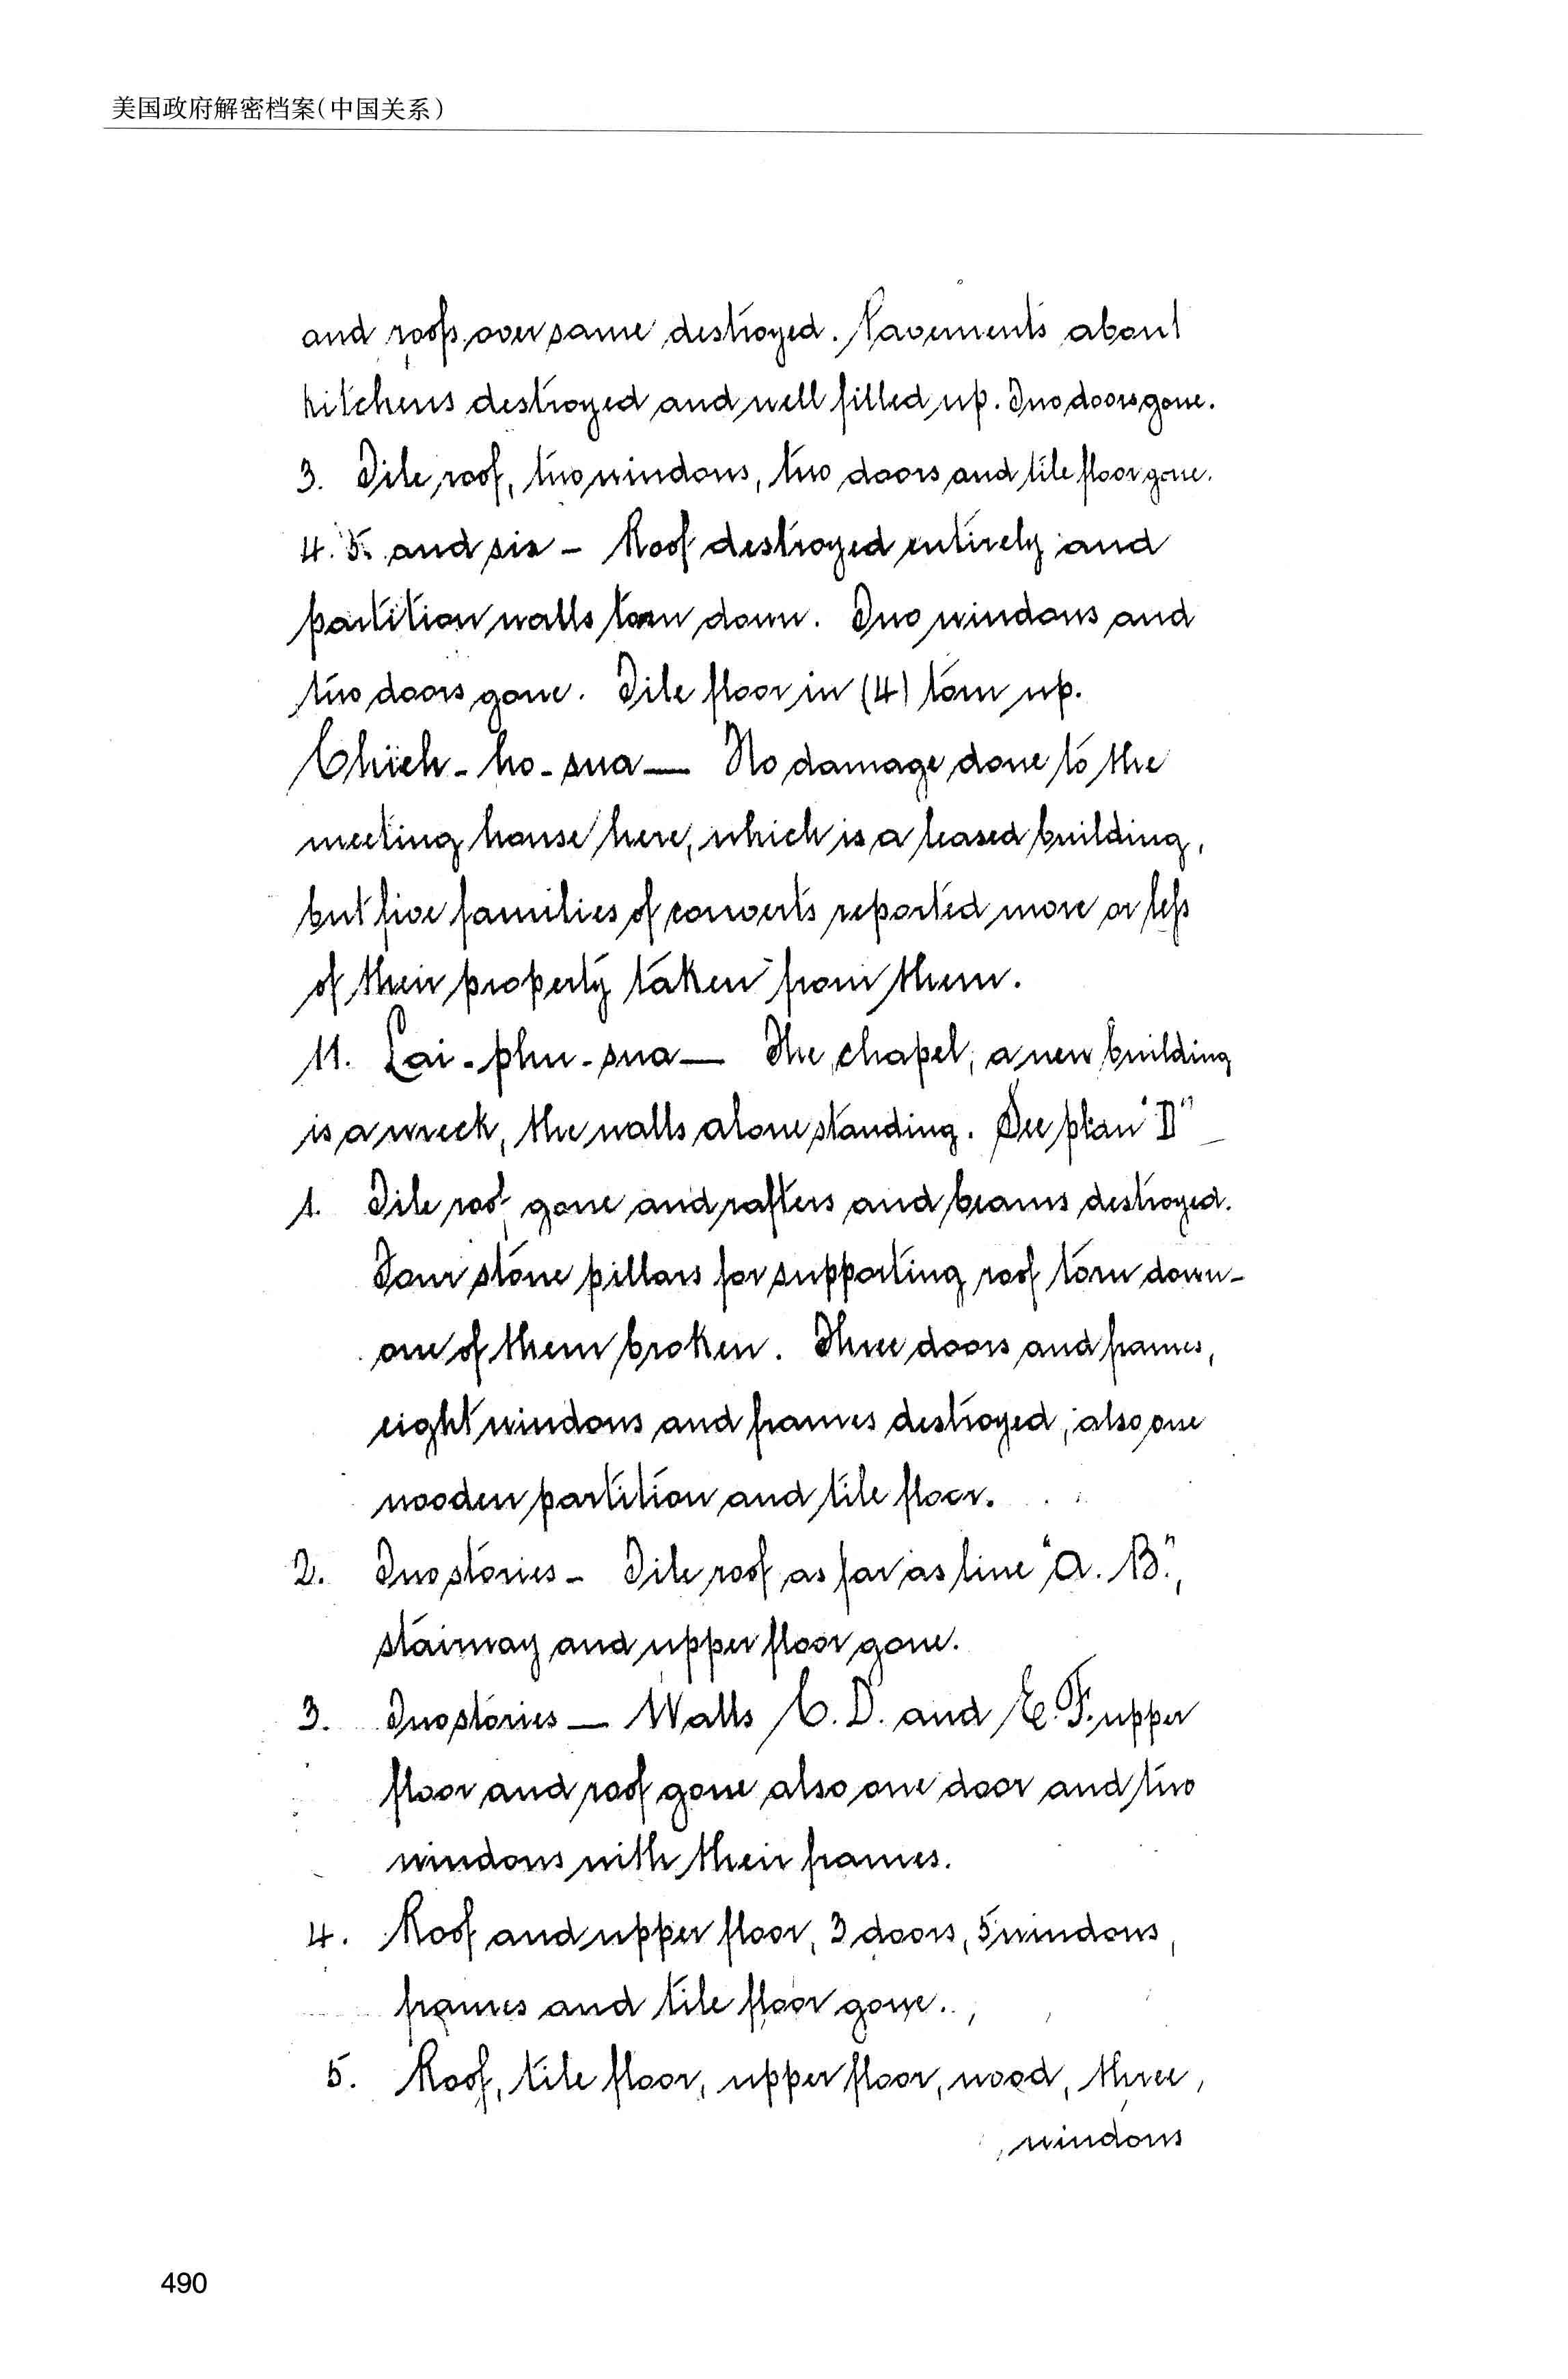 美国政府解密档案(中国关系)
and roofs over same destroyed. Pavements about
kitchens destroyed and well filled up. Two doors gone.
3. Tile roof, two windows, two doors and tile floor gone.
4. 5. and six - Roof destroyed entirely and
partition walls torn down. Two windows and
two doors gone. Tile floor in (4) torn up.
Chieh-ho-sua — No damage done to the
meeting house here, which is a leased building,
but five families of converts reported more or less
of their property taken from them.
11. Lai-phu-sua — The chapel, a new building
is a wreck, the walls alone standing. See plan "D" _
1. Tile roof gone and rafters and beams destroyed.
Four stone pillars for supporting roof torn down -
one of them broken. Three doors and frames,
eight windows and frames destroyed, also one
wooden partition and tile floor.
2. Two stories - Tile roof as far as line "A. B.",
stairway and upper floor gone.
3. Two stories — Walls C. D. and E. F. upper
floor and roof gone also one door and two
windows with their frames.
4. Roof and upper floor, 3 doors, 5 windows,
frames and tile floor gone.
5. Roof, tile floor, upper floor, wood, three,
windows
490